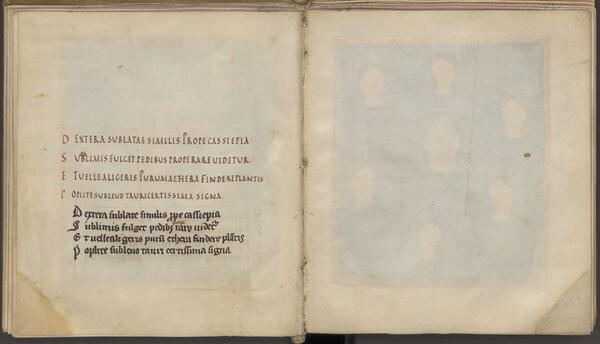 D EXTERA SUBLATAE SIMILIS PROPE CASSIEPIA
S UBLIMIS FULGET PEDIBUS PROPERARE UIDETUR
E T UELLE ALIGERIS PURUM AETHERA FINDERE PLANTIS
P OPLITE SUBLEUO TAURI CERTISSIMA SIGNA
D extera sublate similis ppe cassiepia
S ublimis fulget pedibꝫ uidet᷑
E t uelle aligeris purū ethera findere plātis
P oplite subleuo tauri certissima signa